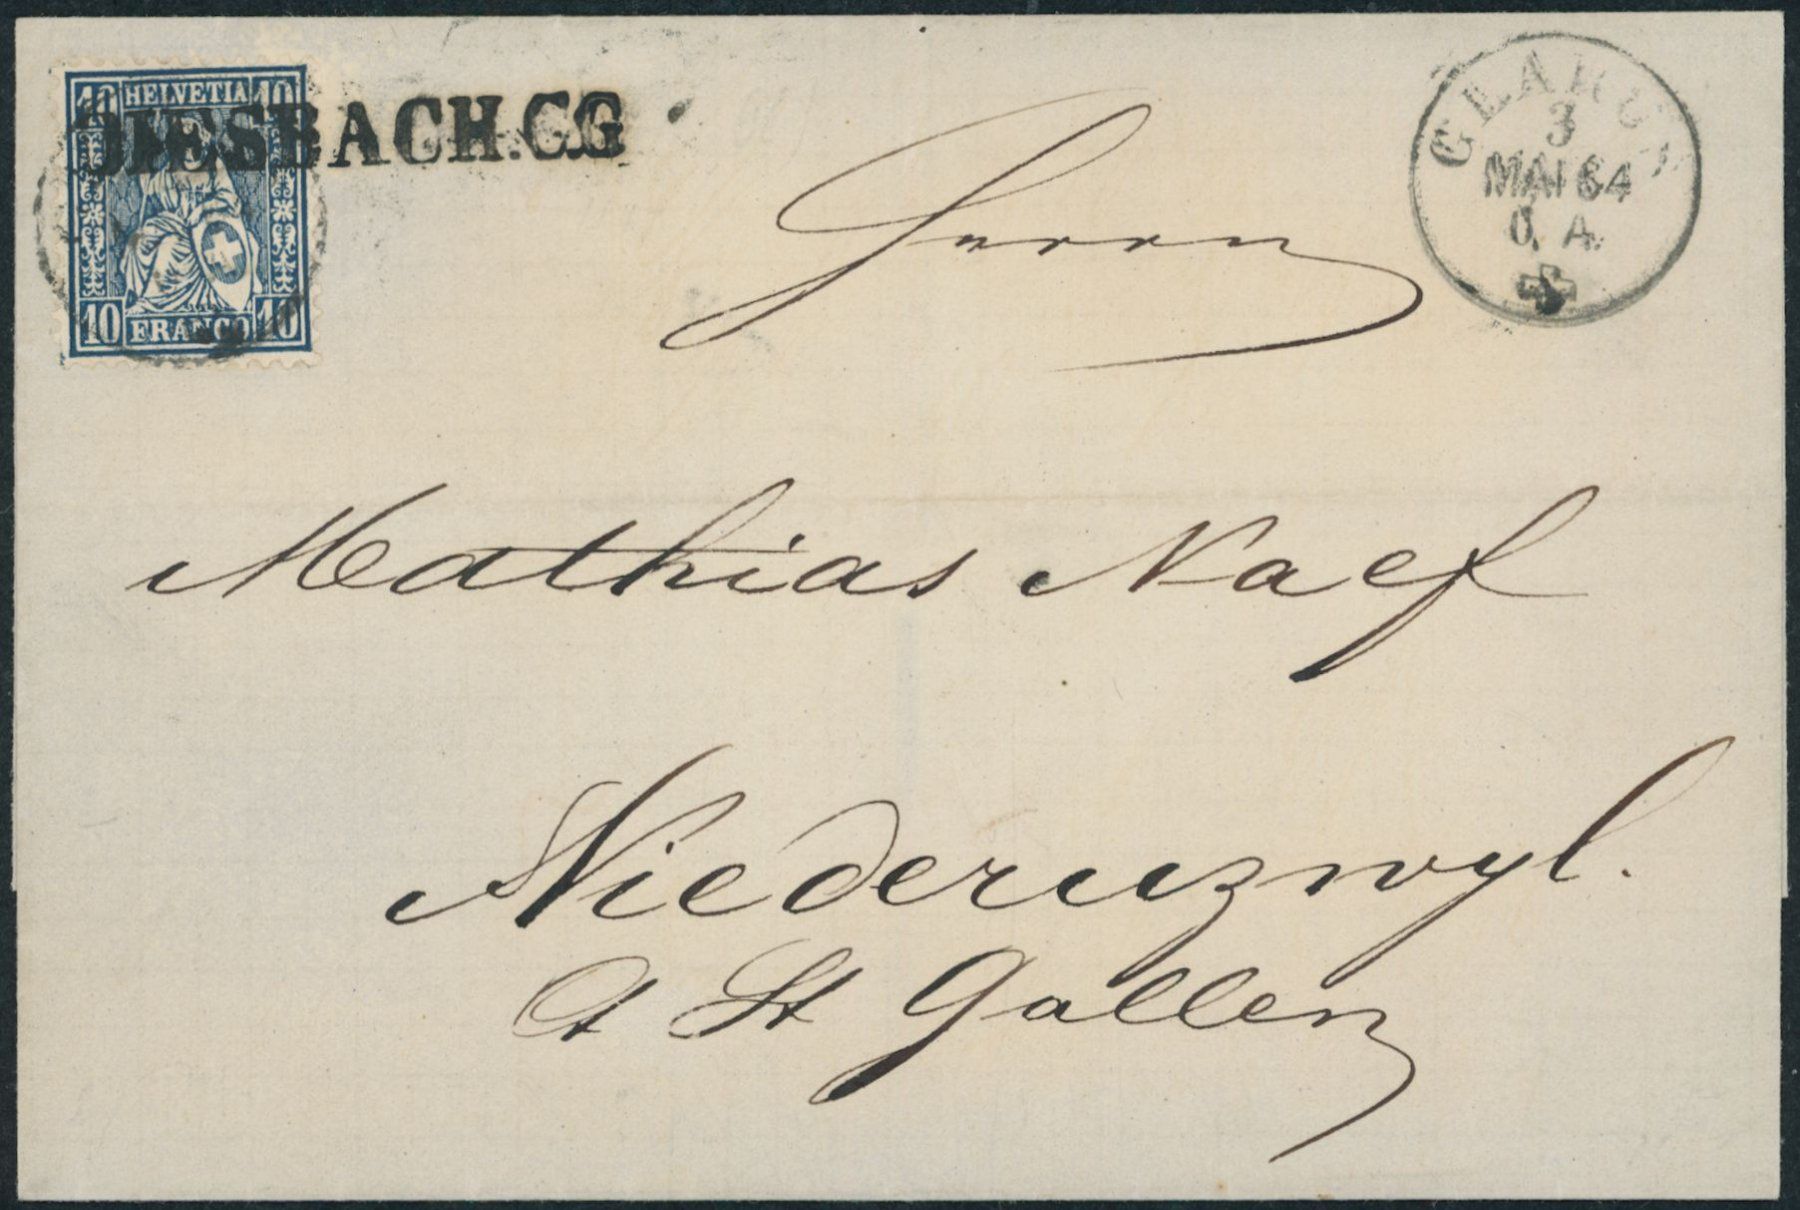 10 HELVETIA 10
DIESBACH.C.G
10 FRANCO 10
GLARUS
3
MAI 64
Herrn
Mathias Naef
Niederuzwyl.
Ct St Gallen